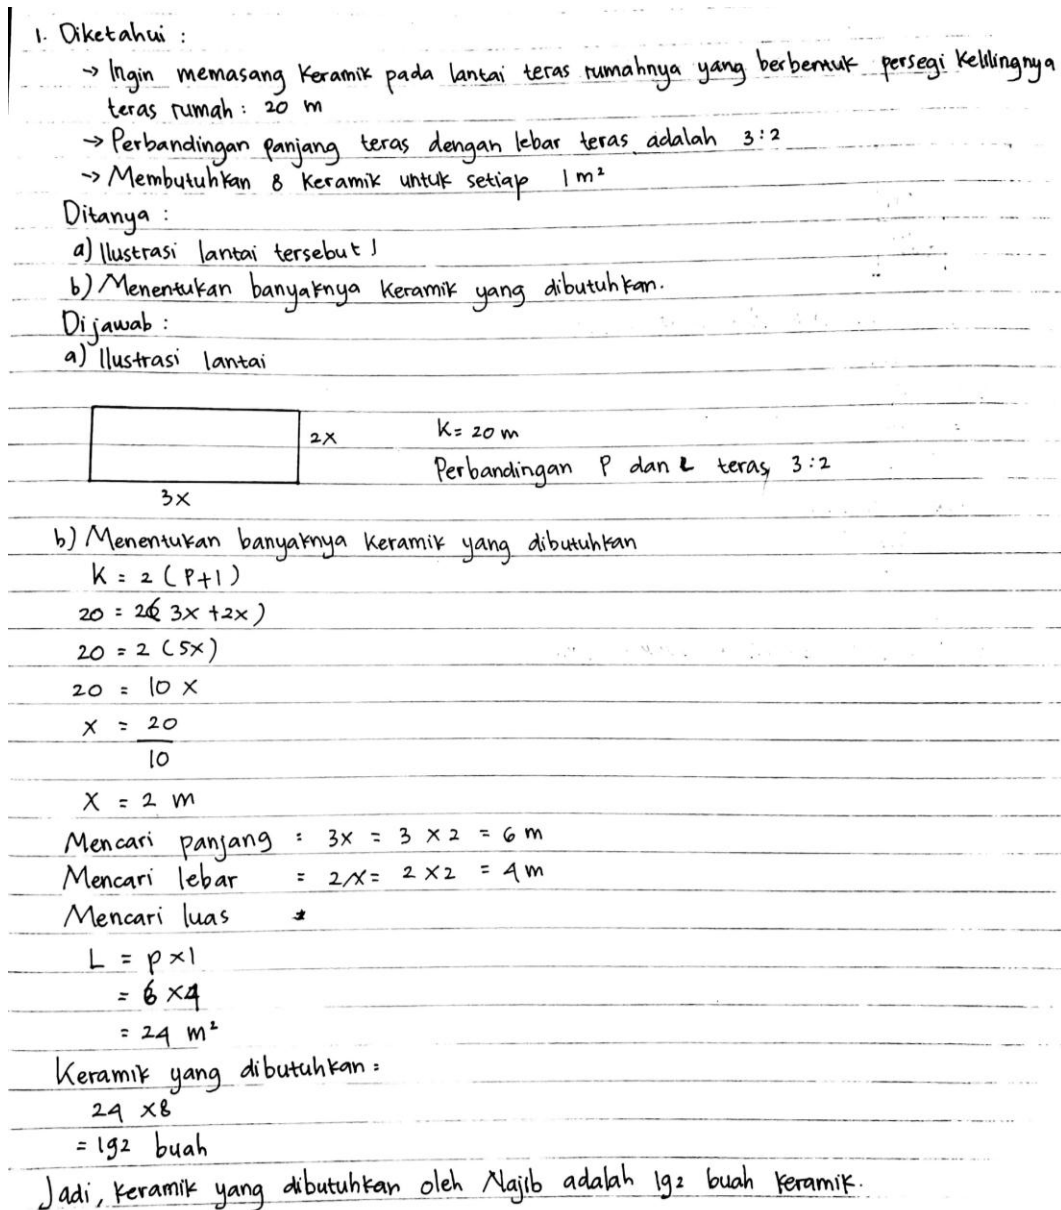 1. Diketahui :
→ Ingin memasang keramik pada lantai teras rumahnya yang berbentuk persegi Kelilingnya
teras rumah : 20 m
→ Perbandingan panjang teras dengan lebar teras adalah 3:2
→ Membutuhkan 8 keramik untuk setiap 1 m²
Ditanya :
a) Ilustrasi lantai tersebut !
b) Menentukan banyaknya keramik yang dibutuhkan.
Dijawab :
a) Ilustrasi lantai
2x
3x
K = 20 m
Perbandingan P dan L teras 3:2
b) Menentukan banyaknya keramik yang dibutuhkan
K = 2 (P+l)
20 = 2( 3x +2x )
20 = 2 (5x)
20 = 10 x
x = 20
10
x = 2 m
Mencari panjang : 3x = 3 × 2 = 6 m
Mencari lebar = 2x = 2 × 2 = 4 m
Mencari luas
L = p × l
= 6 × 4
= 24 m²
Keramik yang dibutuhkan =
24 × 8
= 192 buah
Jadi, keramik yang dibutuhkan oleh Najib adalah 192 buah keramik.